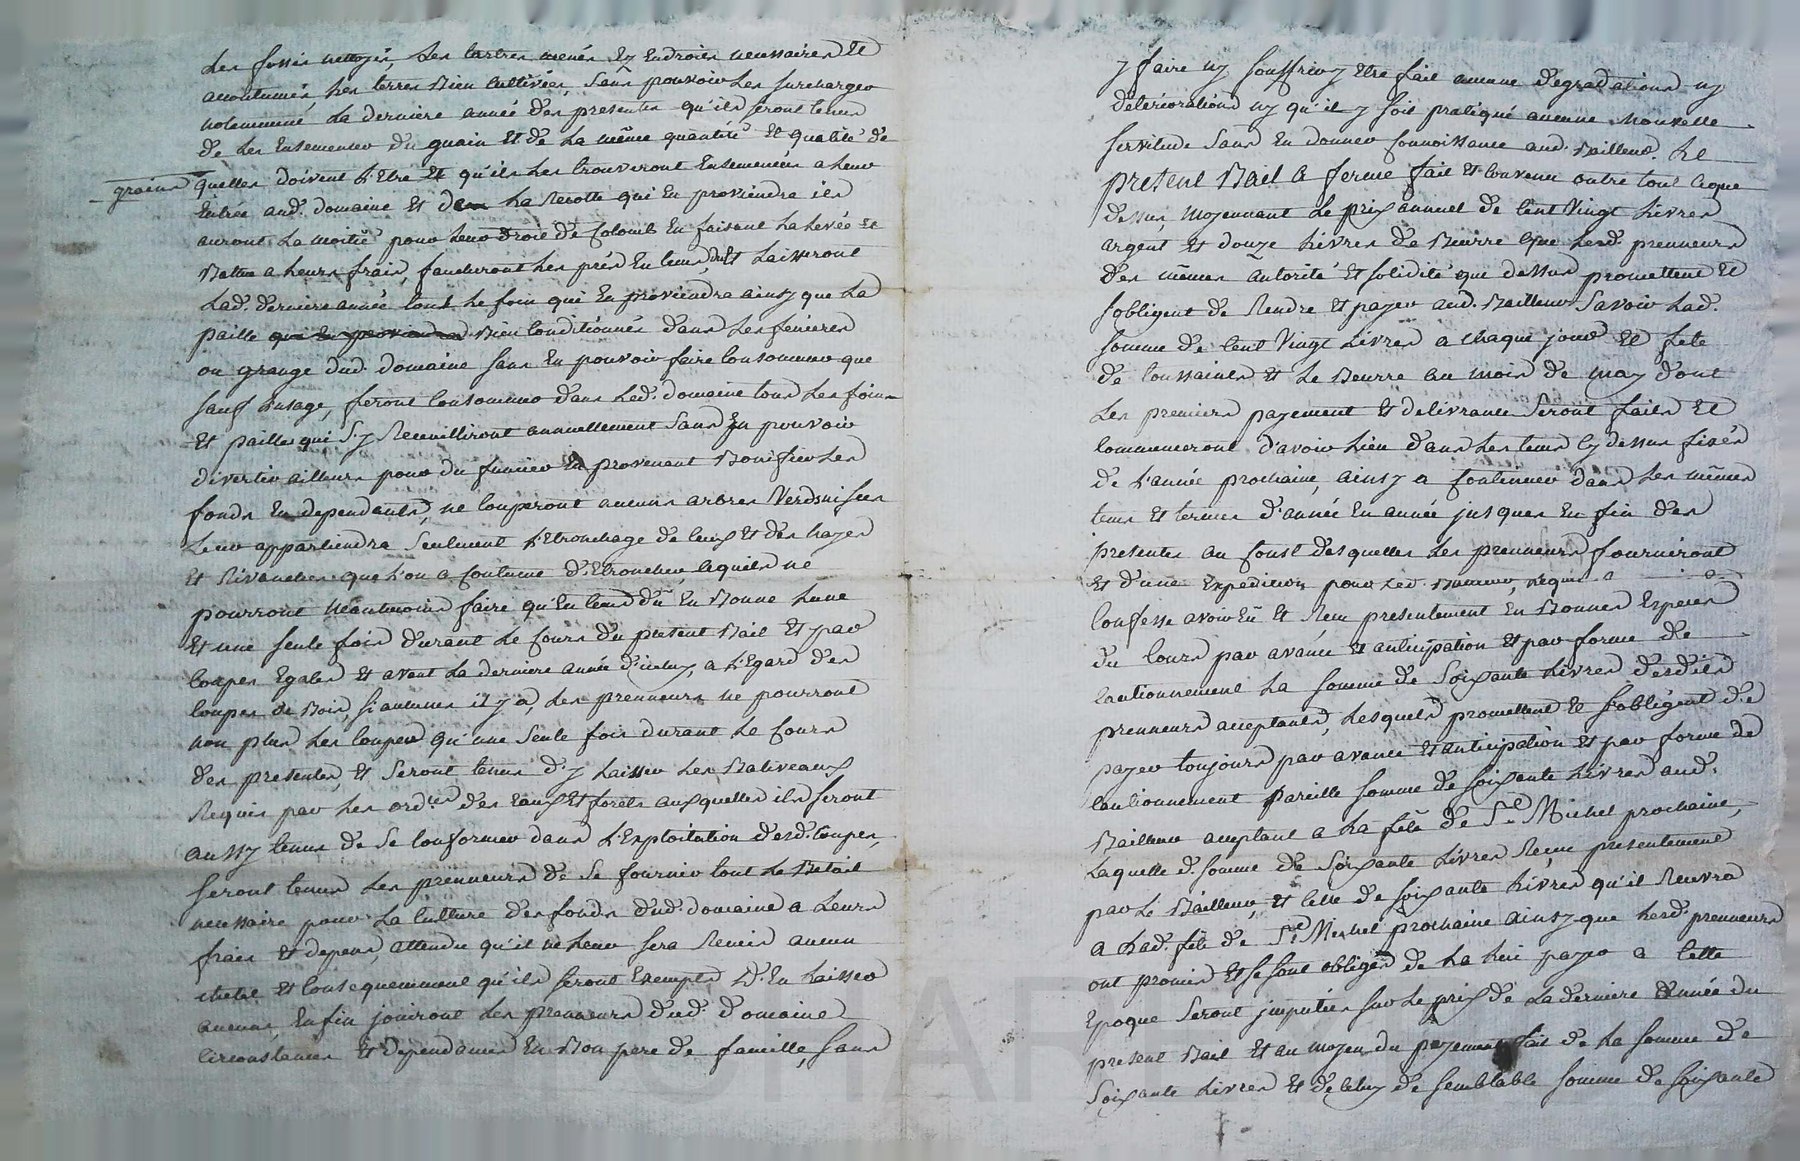 Les fossés nettoyés, Les tertres menés Ez Endroits necessaires Et
acoutumés, Les terres Bien Cultivées, Sans pouvoir Les surcharger
notemment La derniere année des presentes qu'ils seront tenus
de Les Ensemencer du grain Et de La même quantité Et qualité de
grains quelles doivent L'Etre Et qu'ils Les trouveront Ensemencées a Leur
Entrée aud. domaine Et de La Recolte qui En proviendra ils
auront La moitié pour Leur droit de Colons En faisant La Levée Et
Battre a Leurs frais, faucheront Les prés En tems dû Et Laisseront
Lad. derniere année tout Le foin qui En proviendra ainsy que La
paille qui En proviendra Bien Conditionnés dans Les fenieres
ou grange dud. domaine sans En pouvoir faire Consommer que
sauf L'usage, feront Consommer dans Led. domaine tous Les foins
Et pailles qui S'y Recueilliront annuellement Sans En pouvoir
divertir ailleurs pour du fumier En provenant Bonifier Les
fonds En dependants, ne Couperont aucuns arbres Verds ni secs
Leur appartiendra Seulement L'Etronchage de Ceux Et des hayes
Et Rivanches que L'on a Coutume d'Etroncher, Ce qu'ils ne
pourront Neantmoins faire qu'En tems dû En Bonne Lune
Et une seule fois durant Le Cours du present Bail Et par
Coupes Egales Et avant La derniere année d'iceluy, a L'Egard des
Coupes de Bois, si aucunes il y a, Les prenneurs ne pourront
non plus Les Couper qu'une Seule fois durant Le Cours
des presentes, Et Seront tenus d'y Laisser Les Baliveaux
Requis par Les ord.ces des Eaux Et forets auxquelles ils seront
aussy tenus de Se Conformer dans L'Exploitation desd. Coupes,
Seront tenus Les prenneurs de Se fournir tout Le Betail
necessaire pour La Culture des fonds dud. domaine a Leurs
frais Et depens, attendu qu'il ne Leur sera Remis aucun
Cheptel Et Consequemment qu'ils seront Exempts d'En Laisser
aucun, Enfin jouiront Les prenneurs dud. domaine
Circonstances Et dependances En Bon pere de famille, sans
y faire ny souffrir y Etre fait aucune degradations ny
deteriorations ny qu'il y soit pratiqué aucune Nouvelle
servitude Sans En donner Connoissance aud. Bailleur. Le
present Bail a ferme fait Et Convenu outre tout Ceque
dessus, moyennant Le prix annuel de Cent Vingt Livres
argent Et douze Livres de Beurre Que Lesd. prenneurs
des mêmes autorité Et solidité que dessus promettent Et
s'obligent de Rendre Et payer aud. Bailleur Savoir Lad.
somme de Cent Vingt Livres a Chaque jour Et fete
de toussaints Et Le Beurre au mois de may dont
Les premiers payement Et delivrance Seront faits Et
Commenceront d'avoir Lieu dans Les tems Cy dessus fixés
de L'année prochaine, ainsy a Continuer dans Les mêmes
tems Et termes d'année En année jusques En fin des
presentes au Coust desquelles Les prenneurs fourniront
Et d'une Expedition pour Led. Bailleur, Lequel a
Confesse avoir Eû Et Reçu presentement En Bonnes Especes
du Cours par avance Et anticipation Et par forme de
Cautionnement La somme de Soixante Livres desdits
prenneurs acceptants, Lesquels promettent Et s'obligent de
payer toujours par avance Et anticipation Et par forme de
Cautionnement Pareille somme de soixante Livres aud.
Bailleur acceptant a La fête de St Michel prochaine,
Laquelle d. somme de Soixante Livres Reçue presentement
par Le Bailleur, Et Celle de soixante Livres qu'il Recevra
a Lad. fête de St Michel prochaine ainsy que Lesd. prenneurs
ont promis Et se sont obligés de La Lui payer a Cette
Epoque Seront imputées sur Le prix de La derniere Année du
present Bail Et au moyen du payement fait de La somme de
Soixante Livres Et de Celuy de semblable somme de soixante